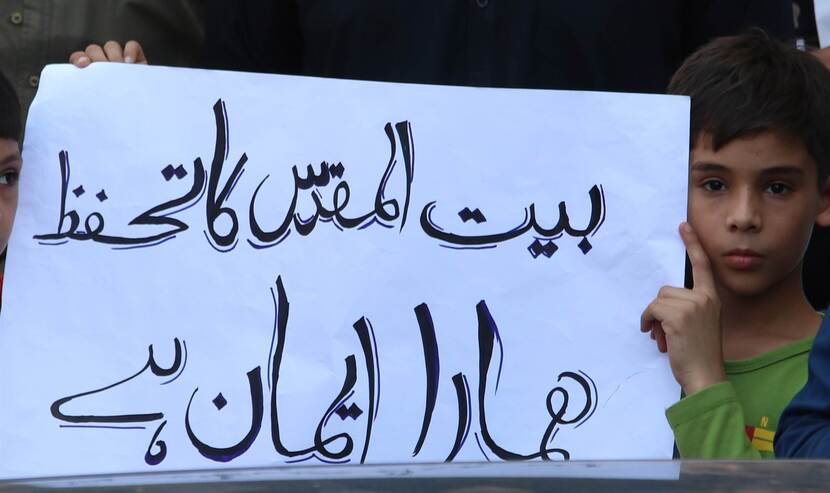 بیت المقدّس کا تحفظ
ھمارا ایمان ہے